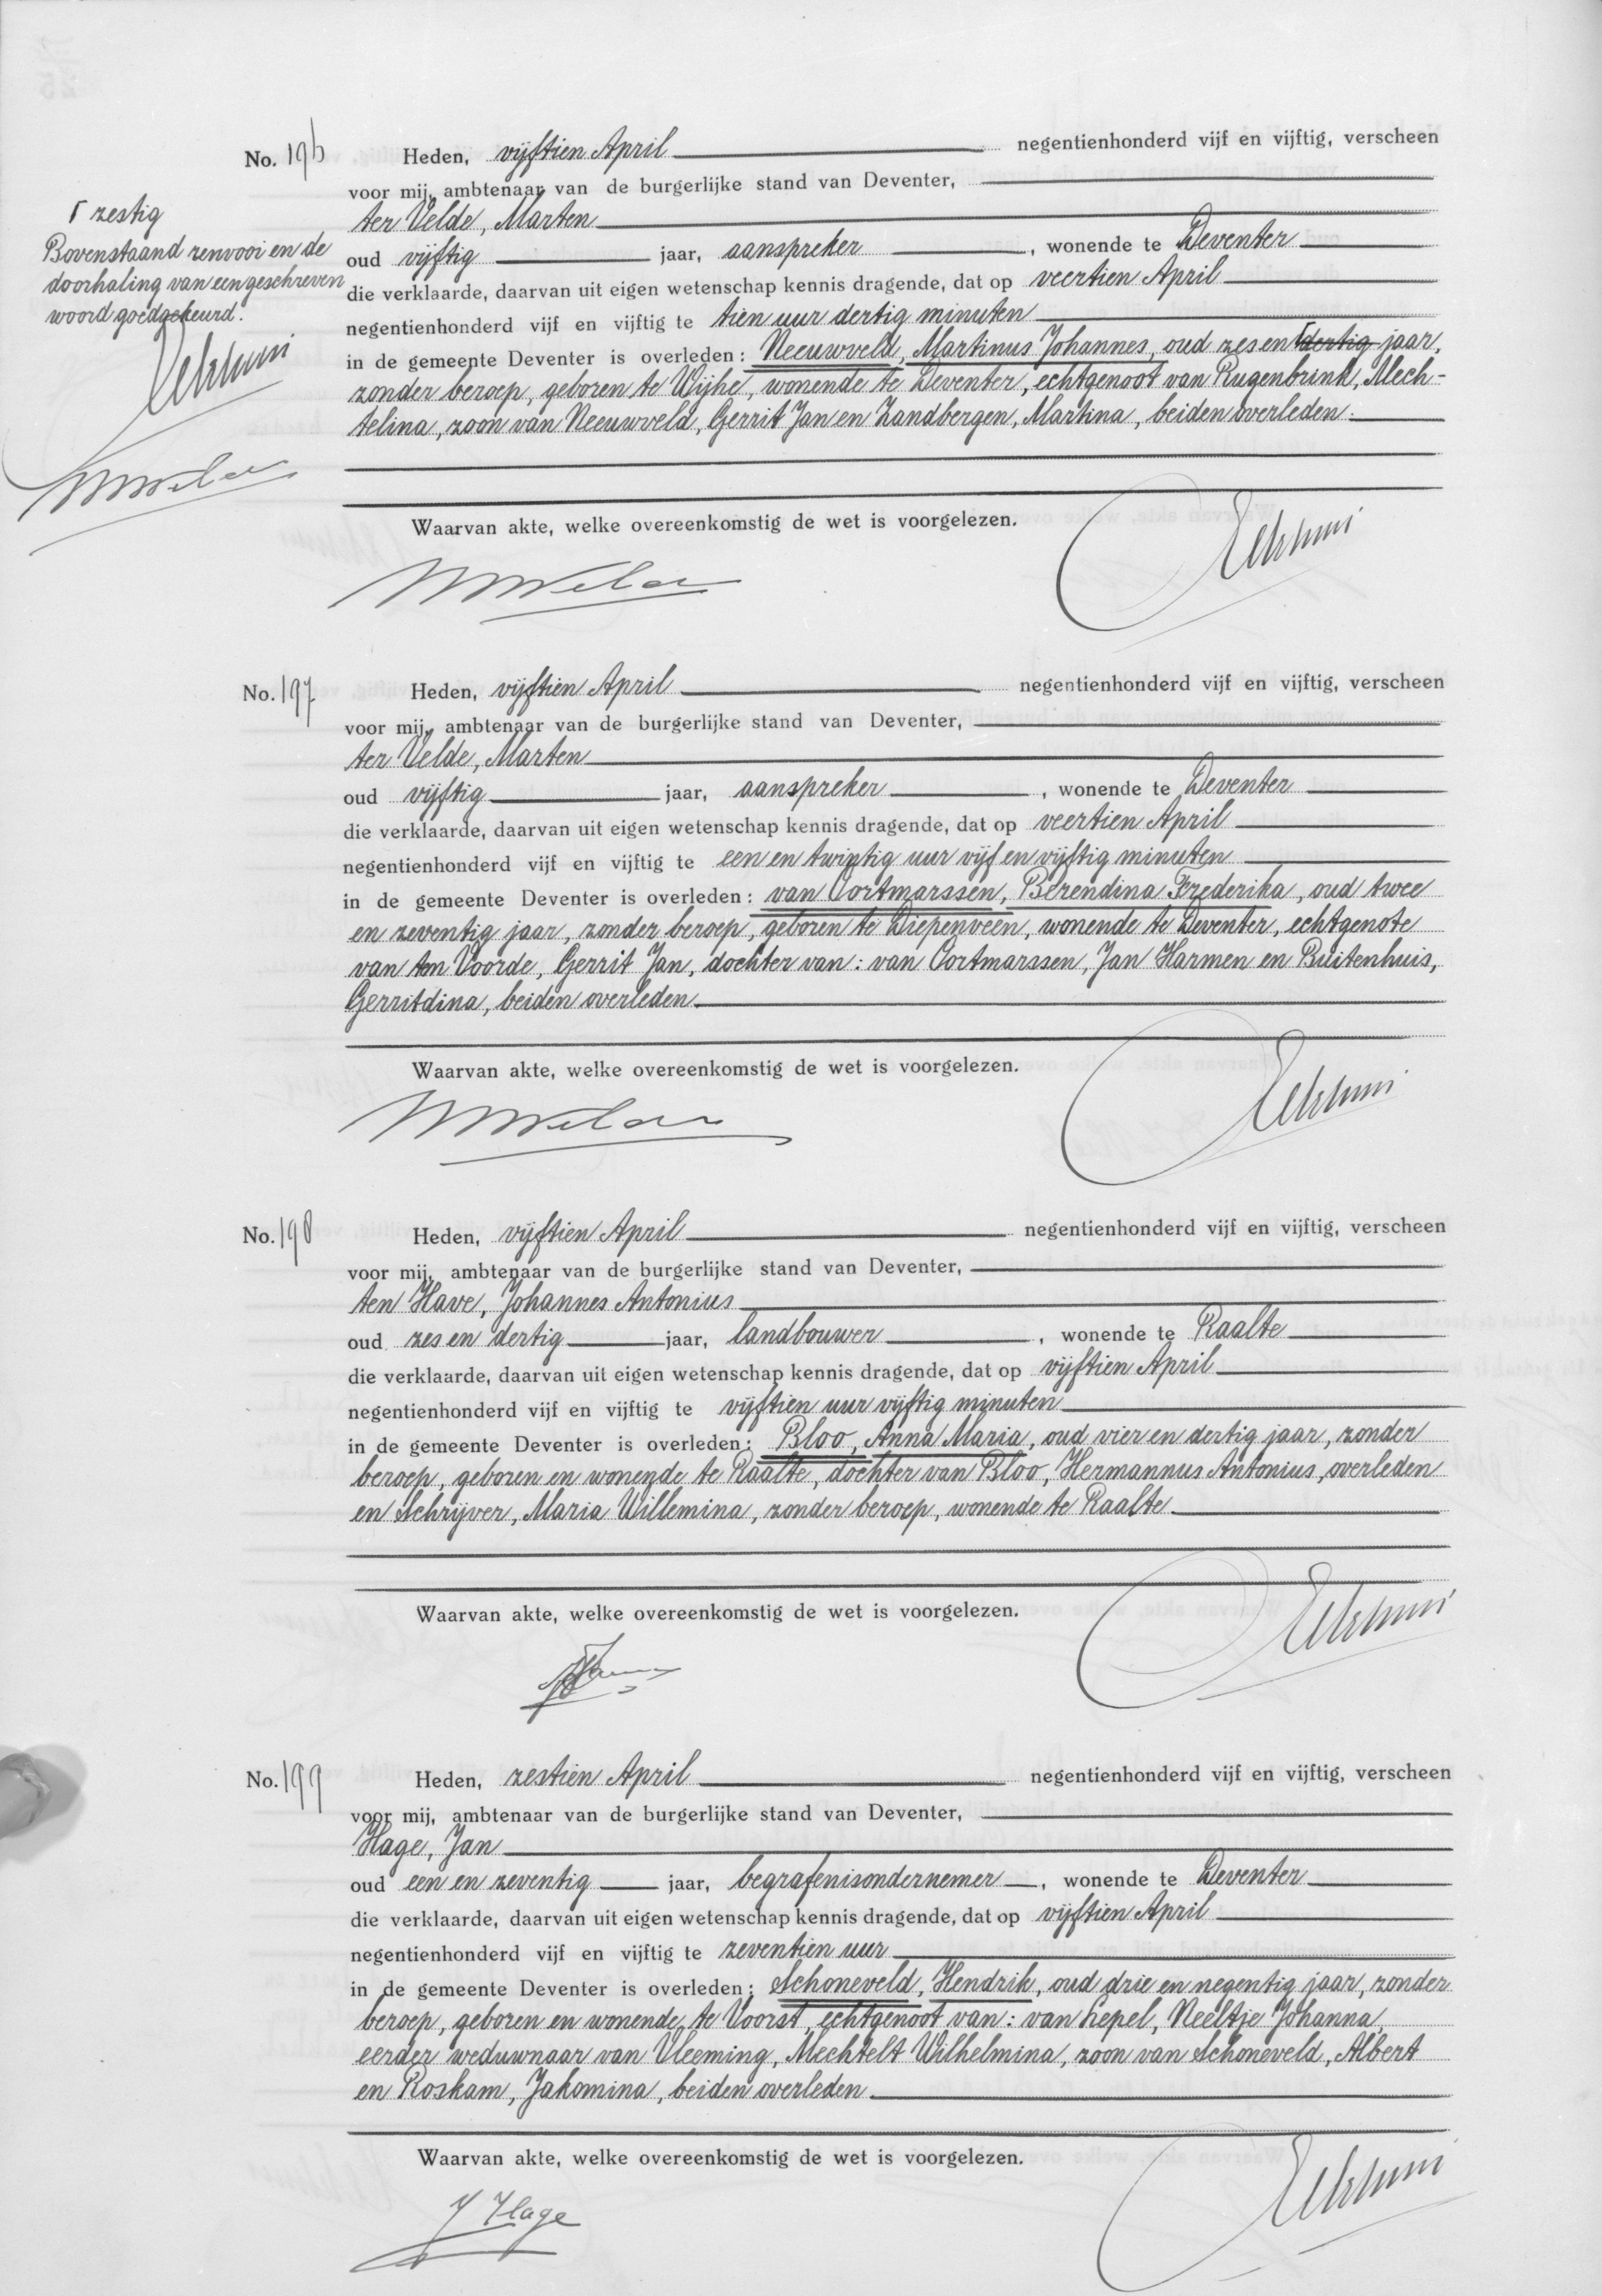 No. 196 Heden, vijftien April negentienhonderd vijf en vijftig, verscheen
voor mij, ambtenaar van de burgerlijke stand van Deventer,
ter Velde, Marten
oud vijftig jaar, aanspreker, wonende te Deventer
die verklaarde, daarvan uit eigen wetenschap kennis dragende, dat op veertien April
negentienhonderd vijf en vijftig te tien uur dertig minuten
in de gemeente Deventer is overleden: Neeuwveld, Martinus Johannes, oud zes en ⌈dertig jaar,
zonder beroep, geboren te Wijhe, wonende te Deventer, echtgenoot van Rugenbrink, Mech-
telina, zoon van Neeuwveld, Gerrit Jan en Zandbergen, Martina, beiden overleden.
⌈ zestig
Bovenstaand renvooi en de
doorhaling van een geschreven
woord goedgekeurd.
Waarvan akte, welke overeenkomstig de wet is voorgelezen.
No. 197 Heden, vijftien April negentienhonderd vijf en vijftig, verscheen
voor mij, ambtenaar van de burgerlijke stand van Deventer,
ter Velde, Marten
oud vijftig jaar, aanspreker, wonende te Deventer
die verklaarde, daarvan uit eigen wetenschap kennis dragende, dat op veertien April
negentienhonderd vijf en vijftig te een en twintig uur vijf en vijftig minuten
in de gemeente Deventer is overleden: van Oortmarssen, Berendina Frederika, oud twee
en zeventig jaar, zonder beroep, geboren te Diepenveen, wonende te Deventer, echtgenote
van ten Voorde, Gerrit Jan, dochter van: van Oortmarssen, Jan Harmen en Buitenhuis,
Gerritdina, beiden overleden
Waarvan akte, welke overeenkomstig de wet is voorgelezen.
No. 198 Heden, vijftien April negentienhonderd vijf en vijftig, verscheen
voor mij, ambtenaar van de burgerlijke stand van Deventer,
ten Have, Johannes Antonius
oud zes en dertig jaar, landbouwer, wonende te Raalte
die verklaarde, daarvan uit eigen wetenschap kennis dragende, dat op vijftien April
negentienhonderd vijf en vijftig te vijftien uur vijftig minuten
in de gemeente Deventer is overleden: Bloo, Anna Maria, oud vier en dertig jaar, zonder
beroep, geboren en wonende te Raalte, dochter van Bloo, Hermannus Antonius, overleden
en Schrijver, Maria Willemina, zonder beroep, wonende te Raalte
Waarvan akte, welke overeenkomstig de wet is voorgelezen.
No. 199 Heden, zestien April negentienhonderd vijf en vijftig, verscheen
voor mij, ambtenaar van de burgerlijke stand van Deventer,
Hage, Jan
oud een en zeventig jaar, begrafenisondernemer, wonende te Deventer
die verklaarde, daarvan uit eigen wetenschap kennis dragende, dat op vijftien April
negentienhonderd vijf en vijftig te zeventien uur
in de gemeente Deventer is overleden: Schoneveld, Hendrik, oud drie en negentig jaar, zonder
beroep, geboren en wonende te Voorst, echtgenoot van: van Nepel, Neeltje Johanna,
eerder weduwnaar van Vleeming, Mechtelt Wilhelmina, zoon van Schoneveld, Albert
en Roskam, Jakomina, beiden overleden
Waarvan akte, welke overeenkomstig de wet is voorgelezen.
J Hage